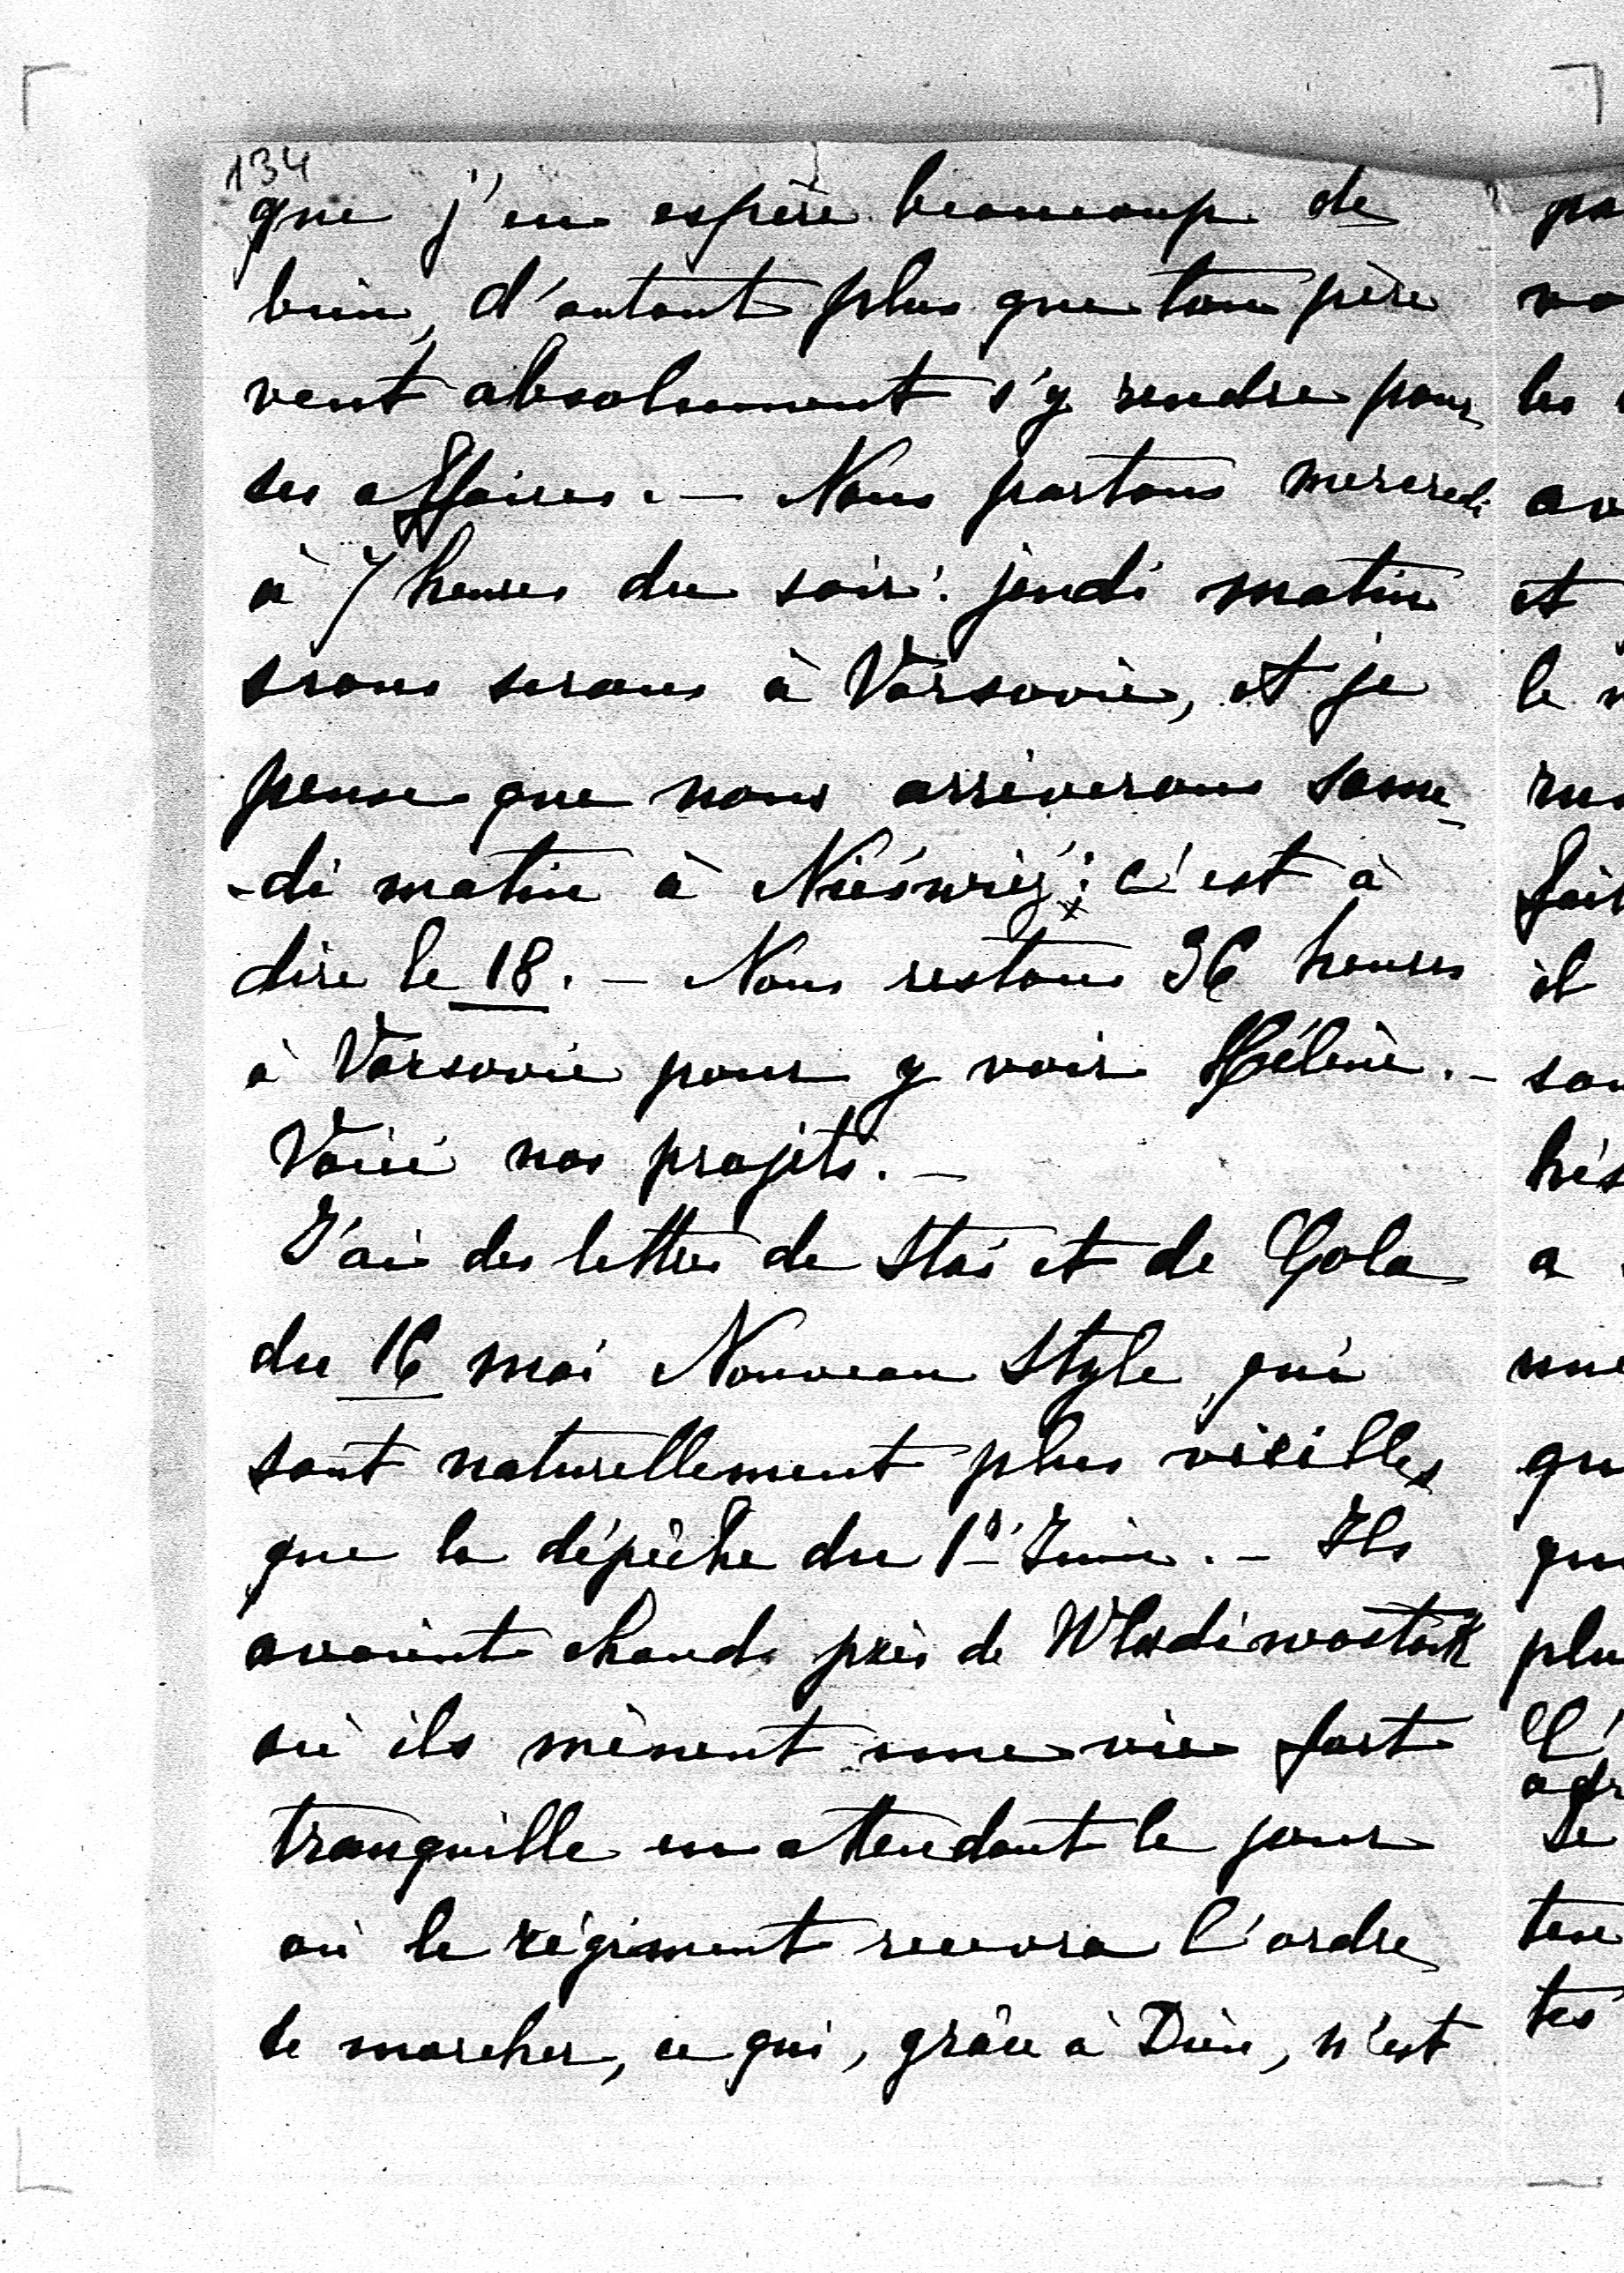 134
que j'en espère beaucoup de
bien, d'autant plus que ton père
veut absolument s'y rendre pour
ses affaires. — Nous partons mercredi
à 7 heures du soir: jeudi matin
nous serons à Varsovie, et je
pense que nous arriverons same
-di matin à Nieśwież; c'est à
dire le 18. — Nous restons 36 heures
à Varsovie pour y voir Hélène. —
Voici nos projets. —
J'ai des lettres de Staś et de Lola
du 16 mai Nouveau Style qui
sont naturellement plus vieilles
que la dépêche du 1r Juin. — Ils
avaient chaud près de Wladiwostock
où ils mènent une vie fort
tranquille en attendant le jour
où le régiment recevra l'ordre
de marcher, ce qui, grâce à Dieu, n'est